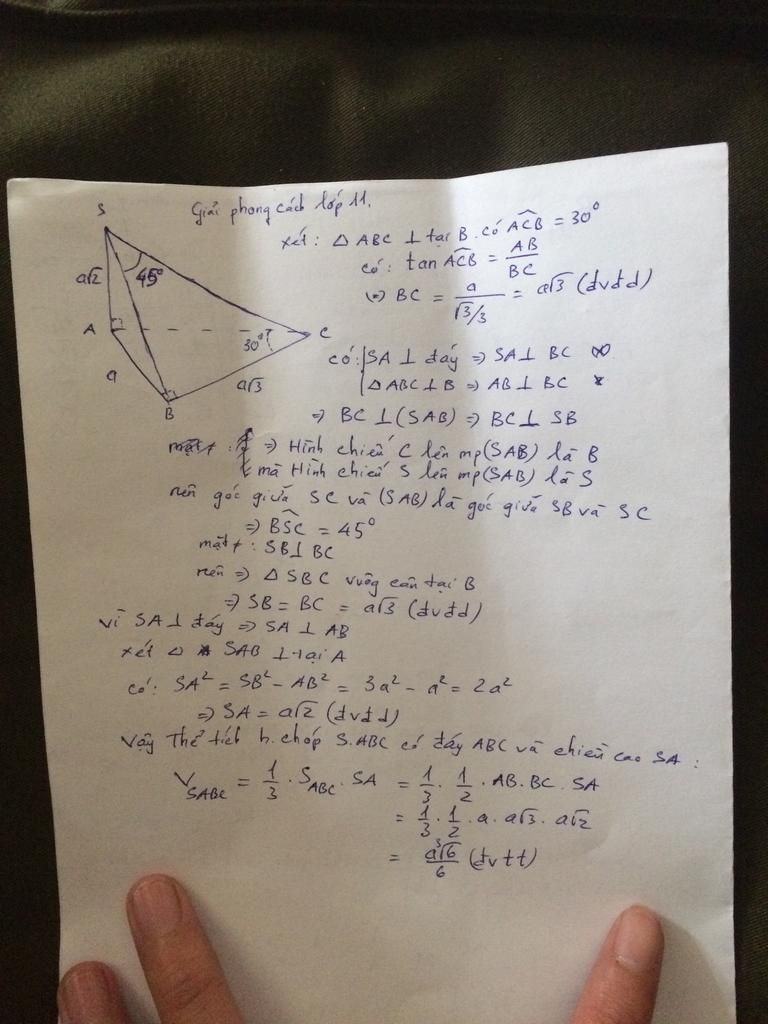 Giải phong cách lớp 11.
S
a√2
45°
A
30°
C
a
a√3
B
xét : Δ ABC ⊥ tại B. có ACB̂ = 30°
có : tan ACB̂ = AB/BC
⇔ BC = a/(√3/3) = a√3 (đvđd)
có: SA ⊥ đáy ⇒ SA ⊥ BC
Δ ABC ⊥ B ⇒ AB ⊥ BC
⇒ BC ⊥ (SAB) ⇒ BC ⊥ SB
⇒ Hình chiếu C lên mp(SAB) là B
mà Hình chiếu S lên mp(SAB) là S
nên góc giữa SC và (SAB) là góc giữa SB và SC
⇒ BSĈ = 45°
mặt ≠ : SB ⊥ BC
nên ⇒ Δ SBC vuông cân tại B
⇒ SB = BC = a√3 (đvđd)
Vì SA ⊥ đáy ⇒ SA ⊥ AB
xét Δ SAB ⊥ tại A
có: SA² = SB² - AB² = 3a² - a² = 2a²
⇒ SA = a√2 (đvđd)
Vậy Thể tích h.chóp S.ABC có đáy ABC và chiều cao SA :
V_SABC = 1/3 . S_ABC . SA = 1/3 . 1/2 . AB . BC . SA
= 1/3 . 1/2 . a . a√3 . a√2
= a³√6/6 (đvtt)